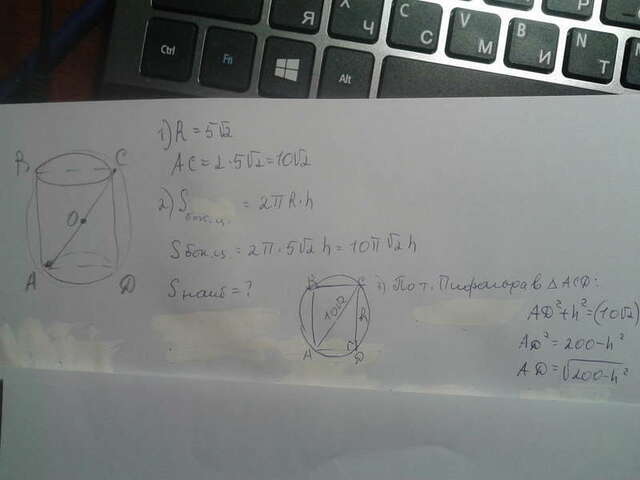 Ctrl
Fn
Alt
Я
Ч
C
С
V
М
B
И
N
Т
B
C
O
A
D
1) R = 5√2
AC = 2·5√2 = 10√2
2) Sбок.ц. = 2πR·h
Sбок.ц. = 2π·5√2 h = 10π√2 h
Sнаиб = ?
B
C
10√2
h
A
D
1) По т. Пифагора в △ACD:
AD²+h²=(10√2)
AD²=200-h²
AD=√200-h²